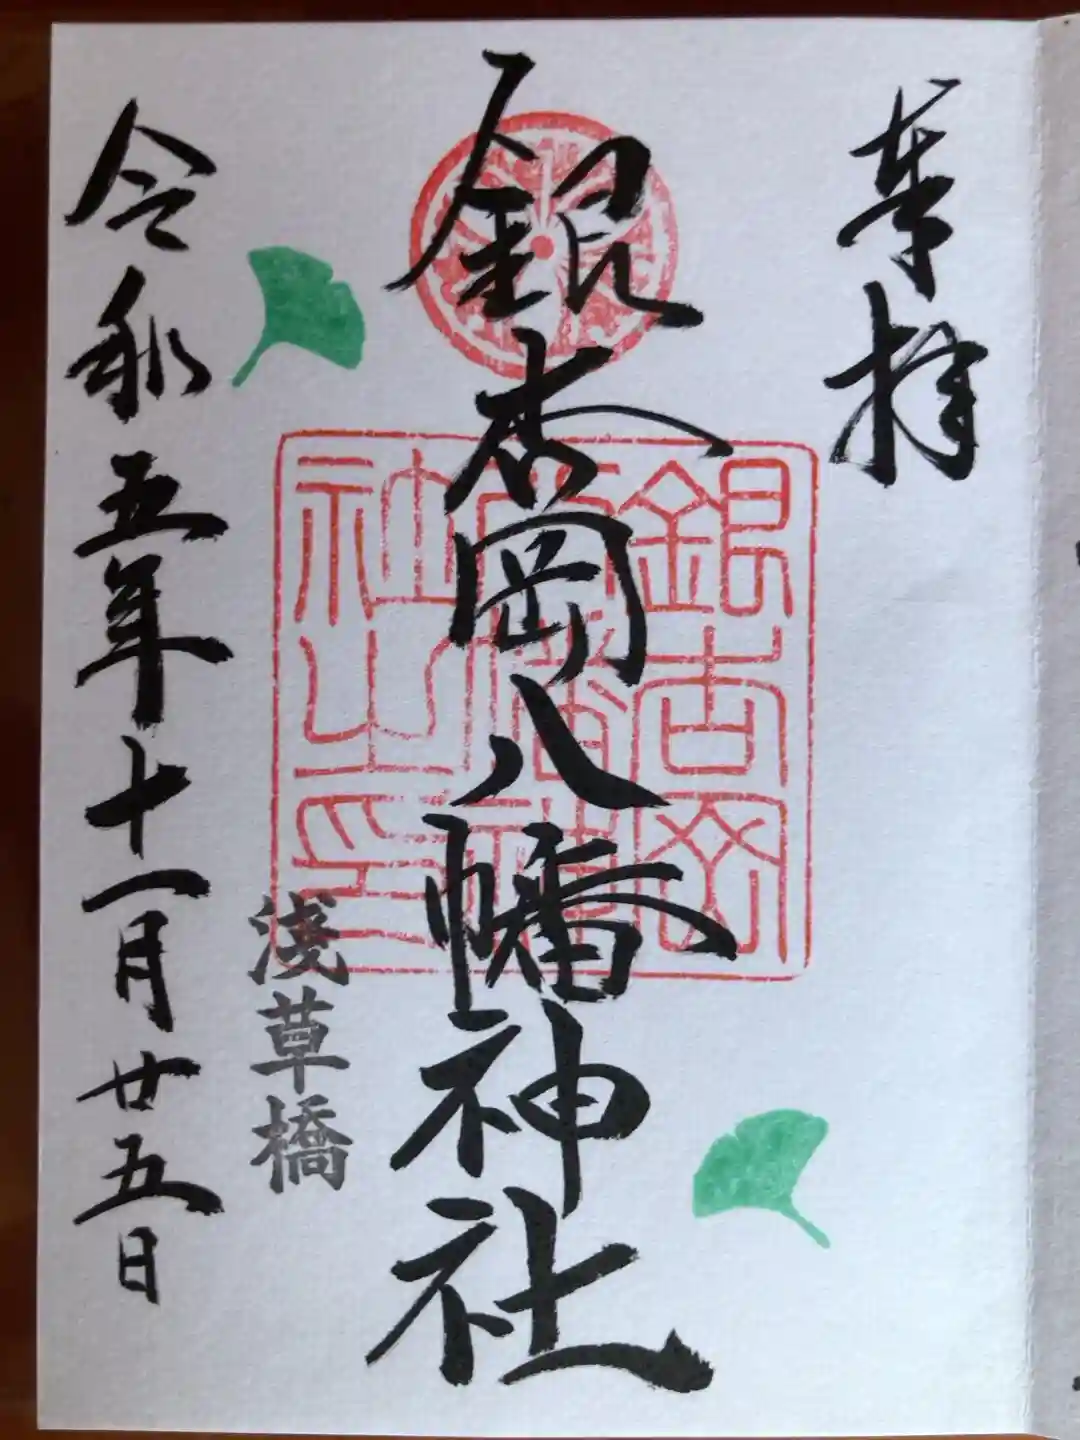 奉拝
銀杏岡八幡神社
銀杏岡
八幡神
社之印
淺草橋
令和五年十一月廿五日